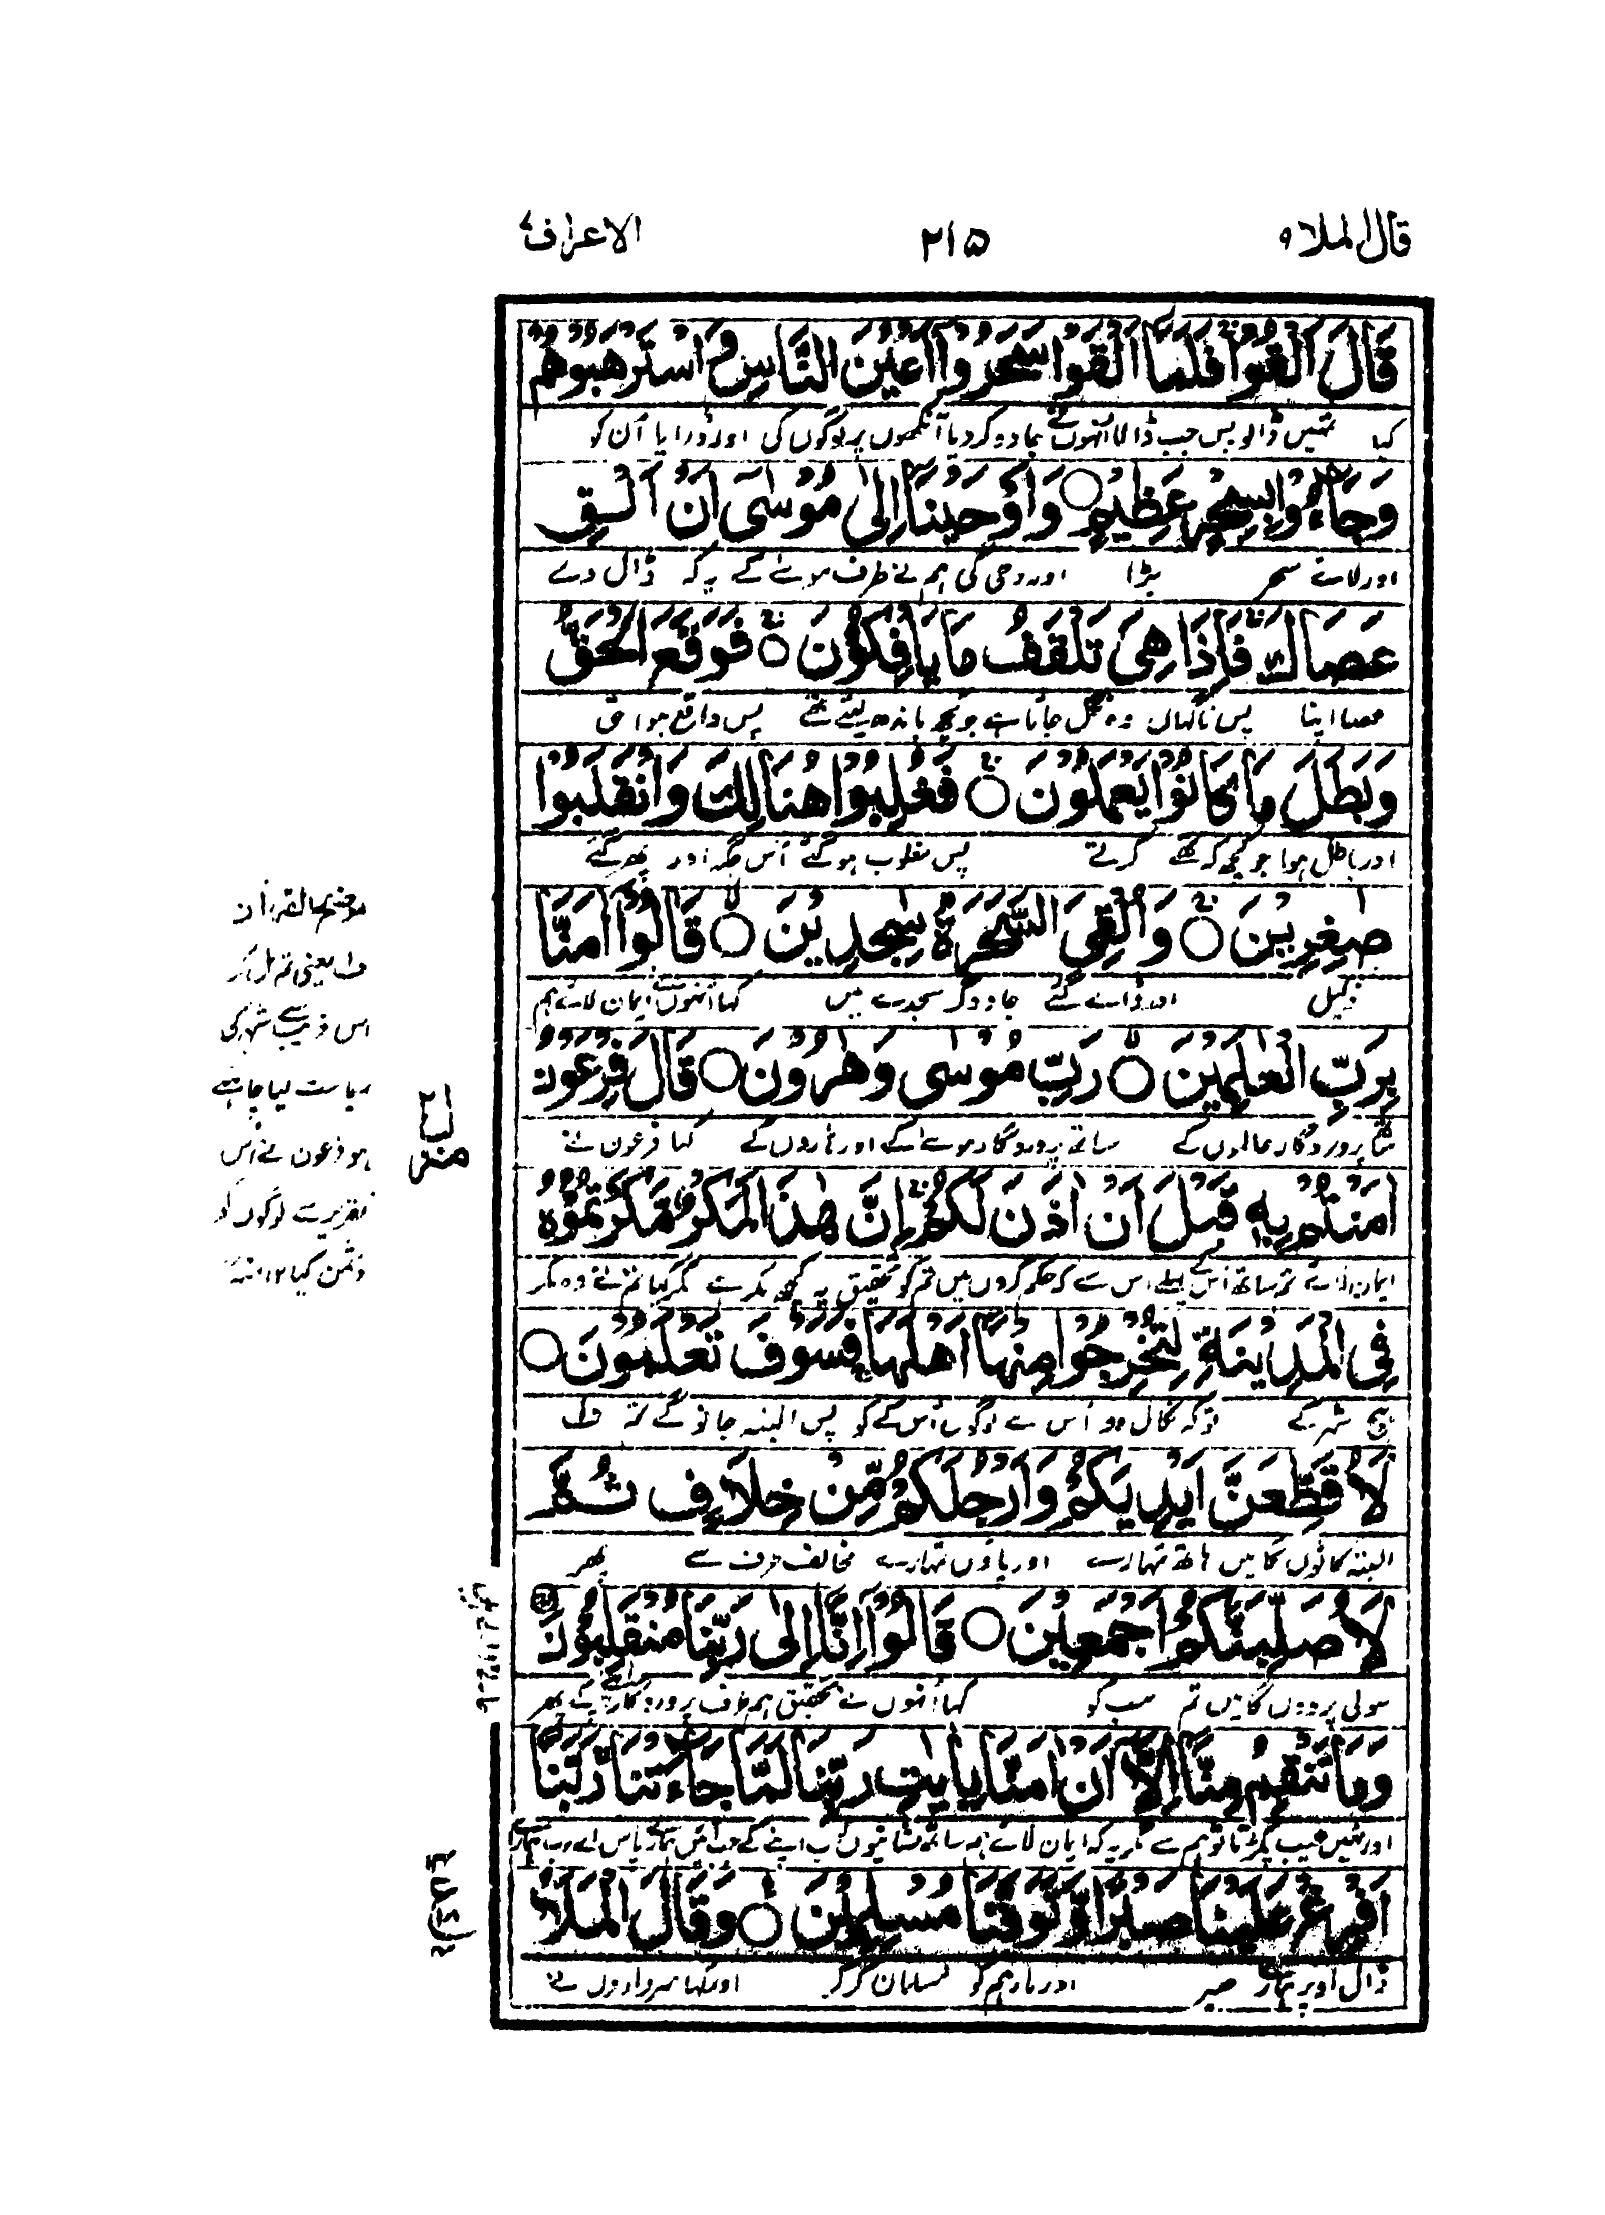 قال الملا ۹
۲۱۵
الاعراف ۷
قَالَ اَلْقُوْا ۚ فَلَمَّآ اَلْقَوْا سَحَرُوْٓا اَعْيُنَ النَّاسِ وَاسْتَرْهَبُوْهُمْ
کہا تمہیں ڈالو پس جب ڈالا انہوں نے جادو کر دیا آنکھوں پر لوگوں کی اور ڈرا یا اُن کو
وَجَآءُوْ بِسِحْرٍ عَظِيْمٍ ○ وَاَوْحَيْنَآ اِلٰى مُوْسٰٓى اَنْ اَلْقِ
اور لائے سحر بڑا اور وحی کی ہم نے طرف موسےٰ کے یہ کہ ڈال دے
عَصَاكَ ۚ فَاِذَا هِيَ تَلْقَفُ مَا يَاْفِكُوْنَ ۚ○ فَوَقَعَ الْحَقُّ
عصا اپنا پس ناگہاں وہ نگل جاتا ہے جو کچھ باندھ لیتے تھے پس واقع ہوا حق
وَبَطَلَ مَا كَانُوْا يَعْمَلُوْنَ ۚ○ فَغُلِبُوْا هُنَالِكَ وَانْقَلَبُوْا
اور باطل ہوا جو کچھ کہ تھے کرتے پس مغلوب ہو گئے اُس جگہ اور پھر گئے
صٰغِرِيْنَ ۚ○ وَاُلْقِيَ السَّحَرَةُ سٰجِدِيْنَ ○ۙ قَالُوْٓا اٰمَنَّا
ذلیل اور ڈالے گئے جادوگر سجدے میں کہا اُنہوں نے ایمان لائے ہم
بِرَبِّ الْعٰلَمِيْنَ ○ۙ رَبِّ مُوْسٰى وَهٰرُوْنَ ○ قَالَ فِرْعَوْنُ
ساتھ پروردگار عالموں کے ساتھ پروردگار موسےٰ کے اور ہاروں کے کہا فرعون نے
اٰمَنْتُمْ بِهٖ قَبْلَ اَنْ اٰذَنَ لَكُمْ ۚ اِنَّ هٰذَا لَمَكْرٌ مَّكَرْتُمُوْهُ
ایمان لائے تم ساتھ اُس کے پہلے اس سے کہ حکم کروں میں تم کو تحقیق یہ کچھ مکر ہے مکر کیا تم نے وہ مکر
فِي الْمَدِيْنَةِ لِتُخْرِجُوْا مِنْهَآ اَهْلَهَا ۚ فَسَوْفَ تَعْلَمُوْنَ ○
بیچ شہر کے تو کہ نکال دو اُس سے لوگوں اُس کے کو پس البتہ جانو گے تم ف
لَاُقَطِّعَنَّ اَيْدِيَكُمْ وَاَرْجُلَكُمْ مِّنْ خِلَافٍ ثُمَّ
البتہ کاٹوں گا میں ہاتھ تمہارے اور پاؤں تمہارے مخالف طرف سے پھر
لَاُصَلِّبَنَّكُمْ اَجْمَعِيْنَ ○ قَالُوْٓا اِنَّآ اِلٰى رَبِّنَا مُنْقَلِبُوْنَ
سولی پر دوں گا میں تم سب کو کہا اُنہوں نے تحقیق ہم طرف پروردگار اپنے کے پھر جانے
وَمَا تَنْقِمُ مِنَّآ اِلَّآ اَنْ اٰمَنَّا بِاٰيٰتِ رَبِّنَا لَمَّا جَآءَتْنَا ۭ رَبَّنَآ
اور نہیں عیب پکڑتا تو ہم سے مگر یہ کہ ایمان لائے ہم ساتھ نشانیوں رب اپنے کے جب آئیں ہمارے پاس اے رب ہمارے
اَفْرِغْ عَلَيْنَا صَبْرًا وَّتَوَفَّنَا مُسْلِمِيْنَ ○ وَقَالَ الْمَلَاُ
ڈال اوپر ہمارے صبر اور مار ہم کو مسلمان کر کر اور کہا سرداروں نے
موضح القرآن
ف یعنی تم مل کر
اس فریب سے شہر کی
ریاست لیا چاہتے
ہو فرعون نے اس
تقریر سے لوگوں کو
دشمن کیا ۱۲ منہ
منزل ۲